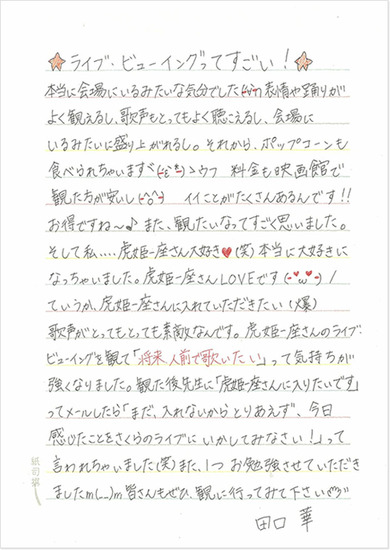 ☆ライブ・ビューイングってすごい！☆
本当に会場にいるみたいな気分でした(^▽^)表情や踊りが
よく観えるし、歌声もとってもよく聴こえるし、会場に
いるみたいに盛り上がれるし。それから、ポップコーンも
食べられちゃいますヾ(・ε・*)ゝウフ 料金も映画館で
観た方が安いし(^o^) イイことがたくさんあるんです!!
お得ですね〜♪ また、観たいなってすごく思いました。
そして私....虎姫一座さん大好き♥(笑)本当に大好きに
なっちゃいました。虎姫一座さんLOVEです(・♥ω♥・)/
ていうか、虎姫一座さんに入れていただきたい(爆)
歌声がとってもとっても素敵なんです。虎姫一座さんのライブ・
ビューイングを観て「将来人前で歌いたい」って気持ちが
強くなりました。観た後先生に「虎姫一座さんに入りたいです」
ってメールしたら「まだ、入れないからとりあえず、今日
感じたことをさくらのライブにいかしてみなさい!」って
言われちゃいました(笑)また、1つお勉強させていただき
ましたm(__)m皆さんもぜひ、観に行ってみて下さい
田口 華